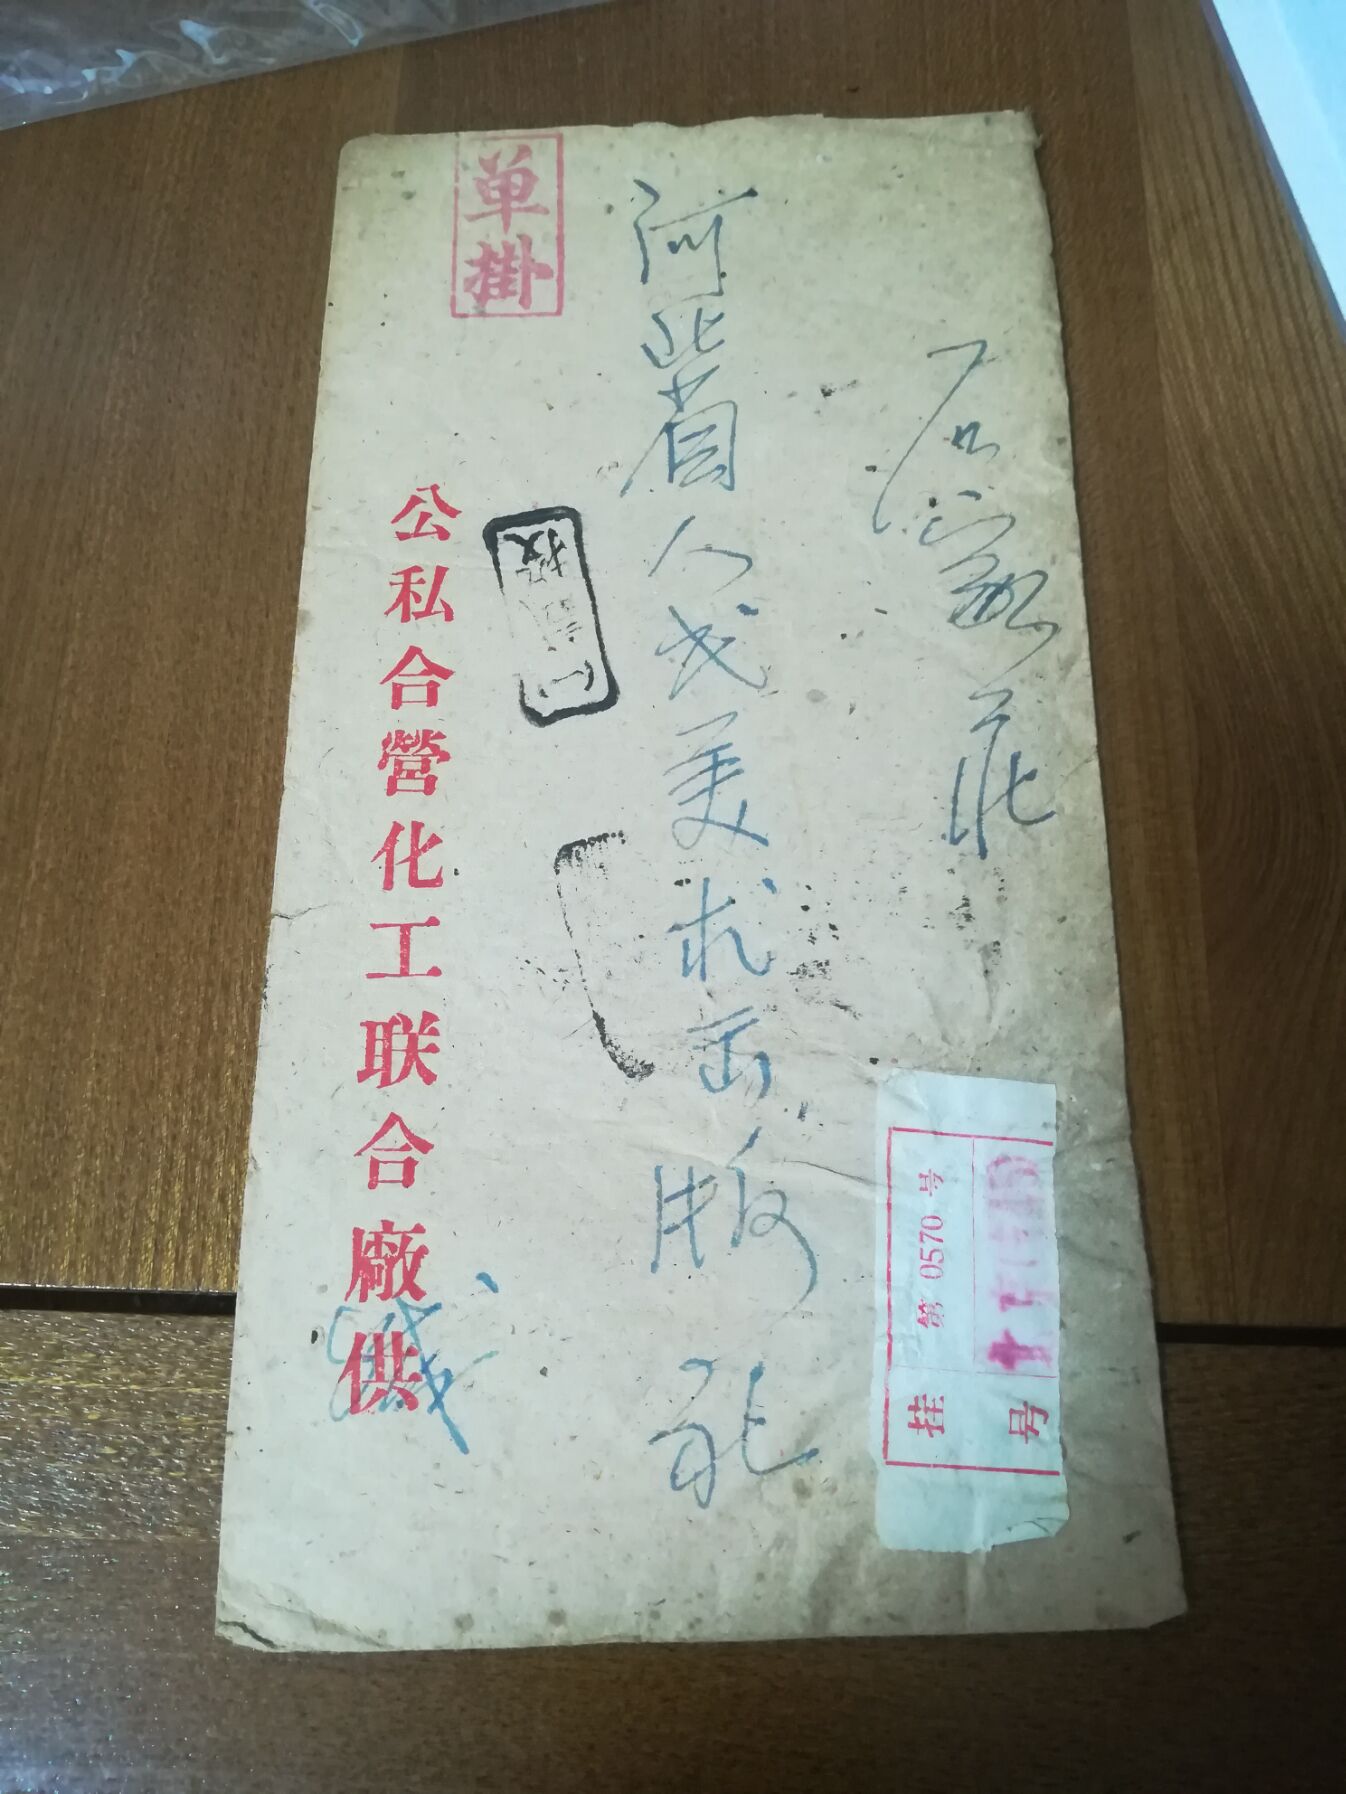 石家庄
河北省人民美术出版社
单掛
公私合營化工联合廠供
缄
投
挂号
第 0570 号